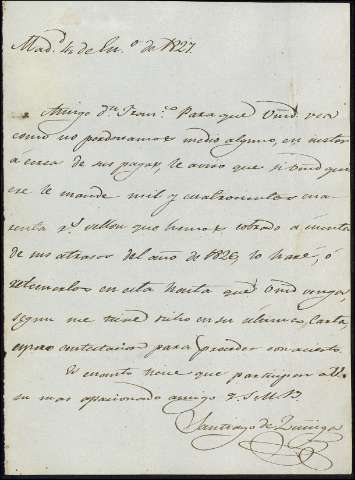 Mad.d 4 de En.o de 1827.
Amigo d.n Fran.co Para que Vmd. vea
como no perdonamos medio alguno, en
a cerca de sus pagas, le aviso que si Vmd. quie
re le mande mil y cuatrocientos cua
renta r.s vellon que hemos cobrado a cuenta
de sus atrasos del año de 1826, lo haré, ó
retenerlos en esta hasta que Vmd. venga,
segun me tiene dicho en su ultima Carta,
espero contestacion para proceder con acierto.
Es cuanto tiene que participar a V.
su mas apasionado amigo Q. S. M. B.
Santiago de Zuñiga